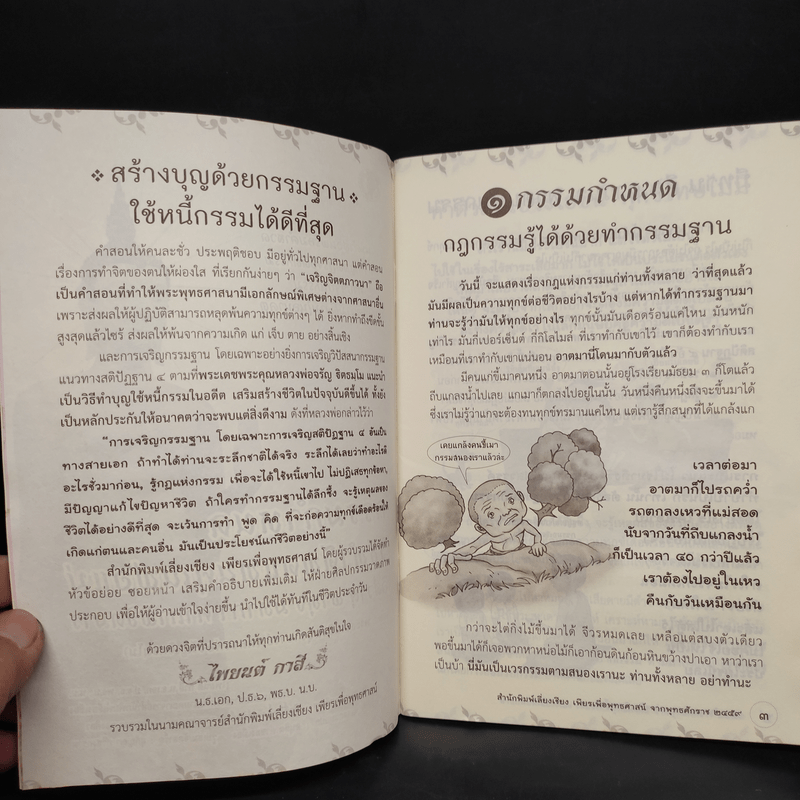 ❖ สร้างบุญด้วยกรรมฐาน ❖
ใช้หนี้กรรมได้ดีที่สุด
คำสอนให้คนละชั่ว ประพฤติชอบ มีอยู่ทั่วไปทุกศาสนา แต่คำสอน
เรื่องการทำจิตของตนให้ผ่องใส ที่เรียกกันง่ายๆ ว่า “เจริญจิตตภาวนา” ถือ
เป็นคำสอนที่ทำให้พระพุทธศาสนามีเอกลักษณ์พิเศษต่างจากศาสนาอื่น
เพราะส่งผลให้ผู้ปฏิบัติสามารถหลุดพ้นความทุกข์ต่างๆ ได้ ยิ่งหากทำถึงขีดขั้น
สูงสุดแล้วไซร้ ส่งผลให้พ้นจากความเกิด แก่ เจ็บ ตาย อย่างสิ้นเชิง
และการเจริญกรรมฐาน โดยเฉพาะอย่างยิ่งการเจริญวิปัสสนากรรมฐาน
แนวทางสติปัฏฐาน ๔ ตามที่พระเดชพระคุณหลวงพ่อจรัญ ฐิตธมฺโม แนะนำ
เป็นวิธีทำบุญใช้หนี้กรรมในอดีต เสริมสร้างชีวิตในปัจจุบันดีขึ้นได้ ทั้งยัง
เป็นหลักประกันให้อนาคตว่าจะพบแต่สิ่งดีงาม ดังที่หลวงพ่อกล่าวไว้ว่า
“การเจริญกรรมฐาน โดยเฉพาะการเจริญสติปัฏฐาน ๔ อันเป็น
ทางสายเอก ถ้าทำได้ท่านจะระลึกชาติได้จริง ระลึกได้เลยว่าทำอะไรดี
อะไรชั่วมาก่อน, รู้กฎแห่งกรรม เพื่อจะได้ใช้หนี้เขาไป ไม่ปฏิเสธทุกข้อหา,
มีปัญญาแก้ไขปัญหาชีวิต ถ้าใครทำกรรมฐานได้ลึกซึ้ง จะรู้เหตุผลของ
ชีวิตได้อย่างดีที่สุด จะเว้นการทำ พูด คิด ที่จะก่อความทุกข์เดือดร้อนให้
เกิดแก่ตนและคนอื่น มันเป็นประโยชน์แก่ชีวิตอย่างนี้”
สำนักพิมพ์เลี่ยงเชียง เพียรเพื่อพุทธศาสน์ โดยผู้รวบรวมได้จัดทำ
หัวข้อย่อย ซอยหน้า เสริมคำอธิบายเพิ่มเติม ให้ฝ่ายศิลปกรรมวาดภาพ
ประกอบ เพื่อให้ผู้อ่านเข้าใจง่ายขึ้น นำไปใช้ได้ทันทีในชีวิตประจำวัน
ด้วยดวงจิตที่ปรารถนาให้ทุกท่านเกิดสันติสุขในใจ
ไพยนต์ กาสี
น.ธ.เอก, ป.ธ.๖, พธ.บ. น.บ.
รวบรวมในนามคณาจารย์สำนักพิมพ์เลี่ยงเชียง เพียรเพื่อพุทธศาสน์
๑ กรรมกำหนด
กฎกรรมรู้ได้ด้วยทำกรรมฐาน
วันนี้ จะแสดงเรื่องกฎแห่งกรรมแก่ท่านทั้งหลาย ว่าที่สุดแล้ว
มันมีผลเป็นความทุกข์ต่อชีวิตอย่างไรบ้าง แต่หากได้ทำกรรมฐานมา
ท่านจะรู้ว่ามันให้ทุกข์อย่างไร ทุกข์นั้นมันเดือดร้อนแค่ไหน มันหนัก
เท่าไร มันกี่เปอร์เซ็นต์ กี่กิโลไมล์ ที่เราทำกับเขาไว้ เขาก็ต้องทำกับเรา
เหมือนที่เราทำกับเขาแน่นอน อาตมานี่โดนมากับตัวแล้ว
มีคนแก่ขี้เมาคนหนึ่ง อาตมาตอนนั้นอยู่โรงเรียนมัธยม ๓ ก็โตแล้ว
ถีบแกลงน้ำไปเลย แกเมาก็ตกลงไปอยู่ในนั้น วันหนึ่งคืนหนึ่งถึงจะขึ้นมาได้
ซึ่งเราไม่รู้ว่าแกจะต้องทนทุกข์ทรมานแค่ไหน แต่เรารู้สึกสนุกที่ได้แกล้งแก
เคยแกล้งคนขี้เมา
กรรมสนองเราแล้วล่ะ
เวลาต่อมา
อาตมาก็ไปรถคว่ำ
รถตกลงเหวที่แม่สอด
นับจากวันที่ถีบแกลงน้ำ
ก็เป็นเวลา ๔๐ กว่าปีแล้ว
เราต้องไปอยู่ในเหว
คืนกับวันเหมือนกัน
กว่าจะไต่กิ่งไม้ขึ้นมาได้ จีวรหมดเลย เหลือแต่สบงตัวเดียว
พอขึ้นมาได้ก็เจอพวกหาหน่อไม้ก็เอาก้อนดินก้อนหินขว้างปาเอา หาว่าเรา
เป็นบ้า นี่มันเป็นเวรกรรมตามสนองเรานะ ท่านทั้งหลาย อย่าทำนะ
สำนักพิมพ์เลี่ยงเชียง เพียรเพื่อพุทธศาสน์ จากพุทธศักราช ๒๔๕๙
๓